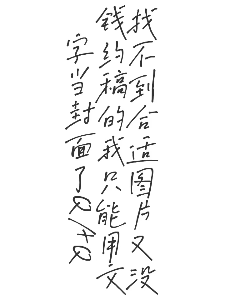 找不到合适图片又没
钱约稿的我只能用文
字当封面了QAQ